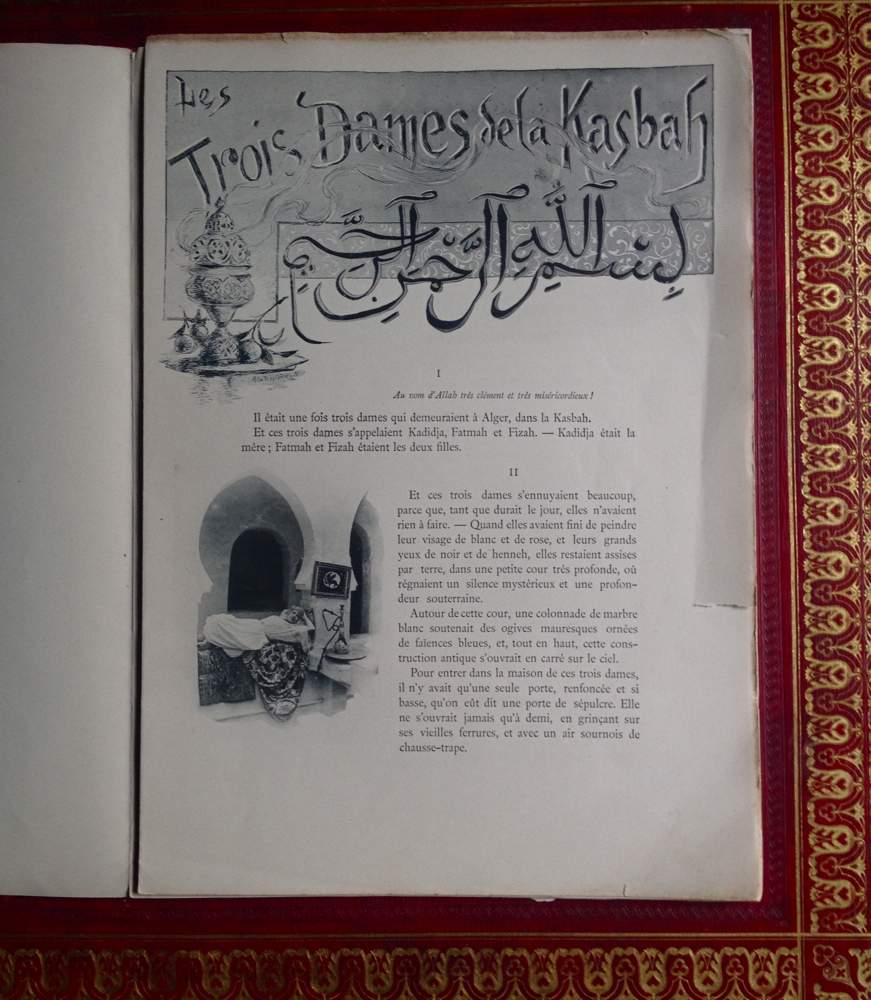 Les
Trois Dames de la Kasbah
بِسْمِ اللَّهِ الرَّحْمٰنِ الرَّحِيمِ
I
Au nom d'Allah très clément et très miséricordieux !
Il était une fois trois dames qui demeuraient à Alger, dans la Kasbah.
Et ces trois dames s'appelaient Kadidja, Fatmah et Fizah. — Kadidja était la
mère ; Fatmah et Fizah étaient les deux filles.
II
Et ces trois dames s'ennuyaient beaucoup,
parce que, tant que durait le jour, elles n'avaient
rien à faire. — Quand elles avaient fini de peindre
leur visage de blanc et de rose, et leurs grands
yeux de noir et de henneh, elles restaient assises
par terre, dans une petite cour très profonde, où
régnaient un silence mystérieux et une profon-
deur souterraine.
Autour de cette cour, une colonnade de marbre
blanc soutenait des ogives mauresques ornées
de faïences bleues, et, tout en haut, cette cons-
truction antique s'ouvrait en carré sur le ciel.
Pour entrer dans la maison de ces trois dames,
il n'y avait qu'une seule porte, renfoncée et si
basse, qu'on eût dit une porte de sépulcre. Elle
ne s'ouvrait jamais qu'à demi, en grinçant sur
ses vieilles ferrures, et avec un air sournois de
chausse-trape.